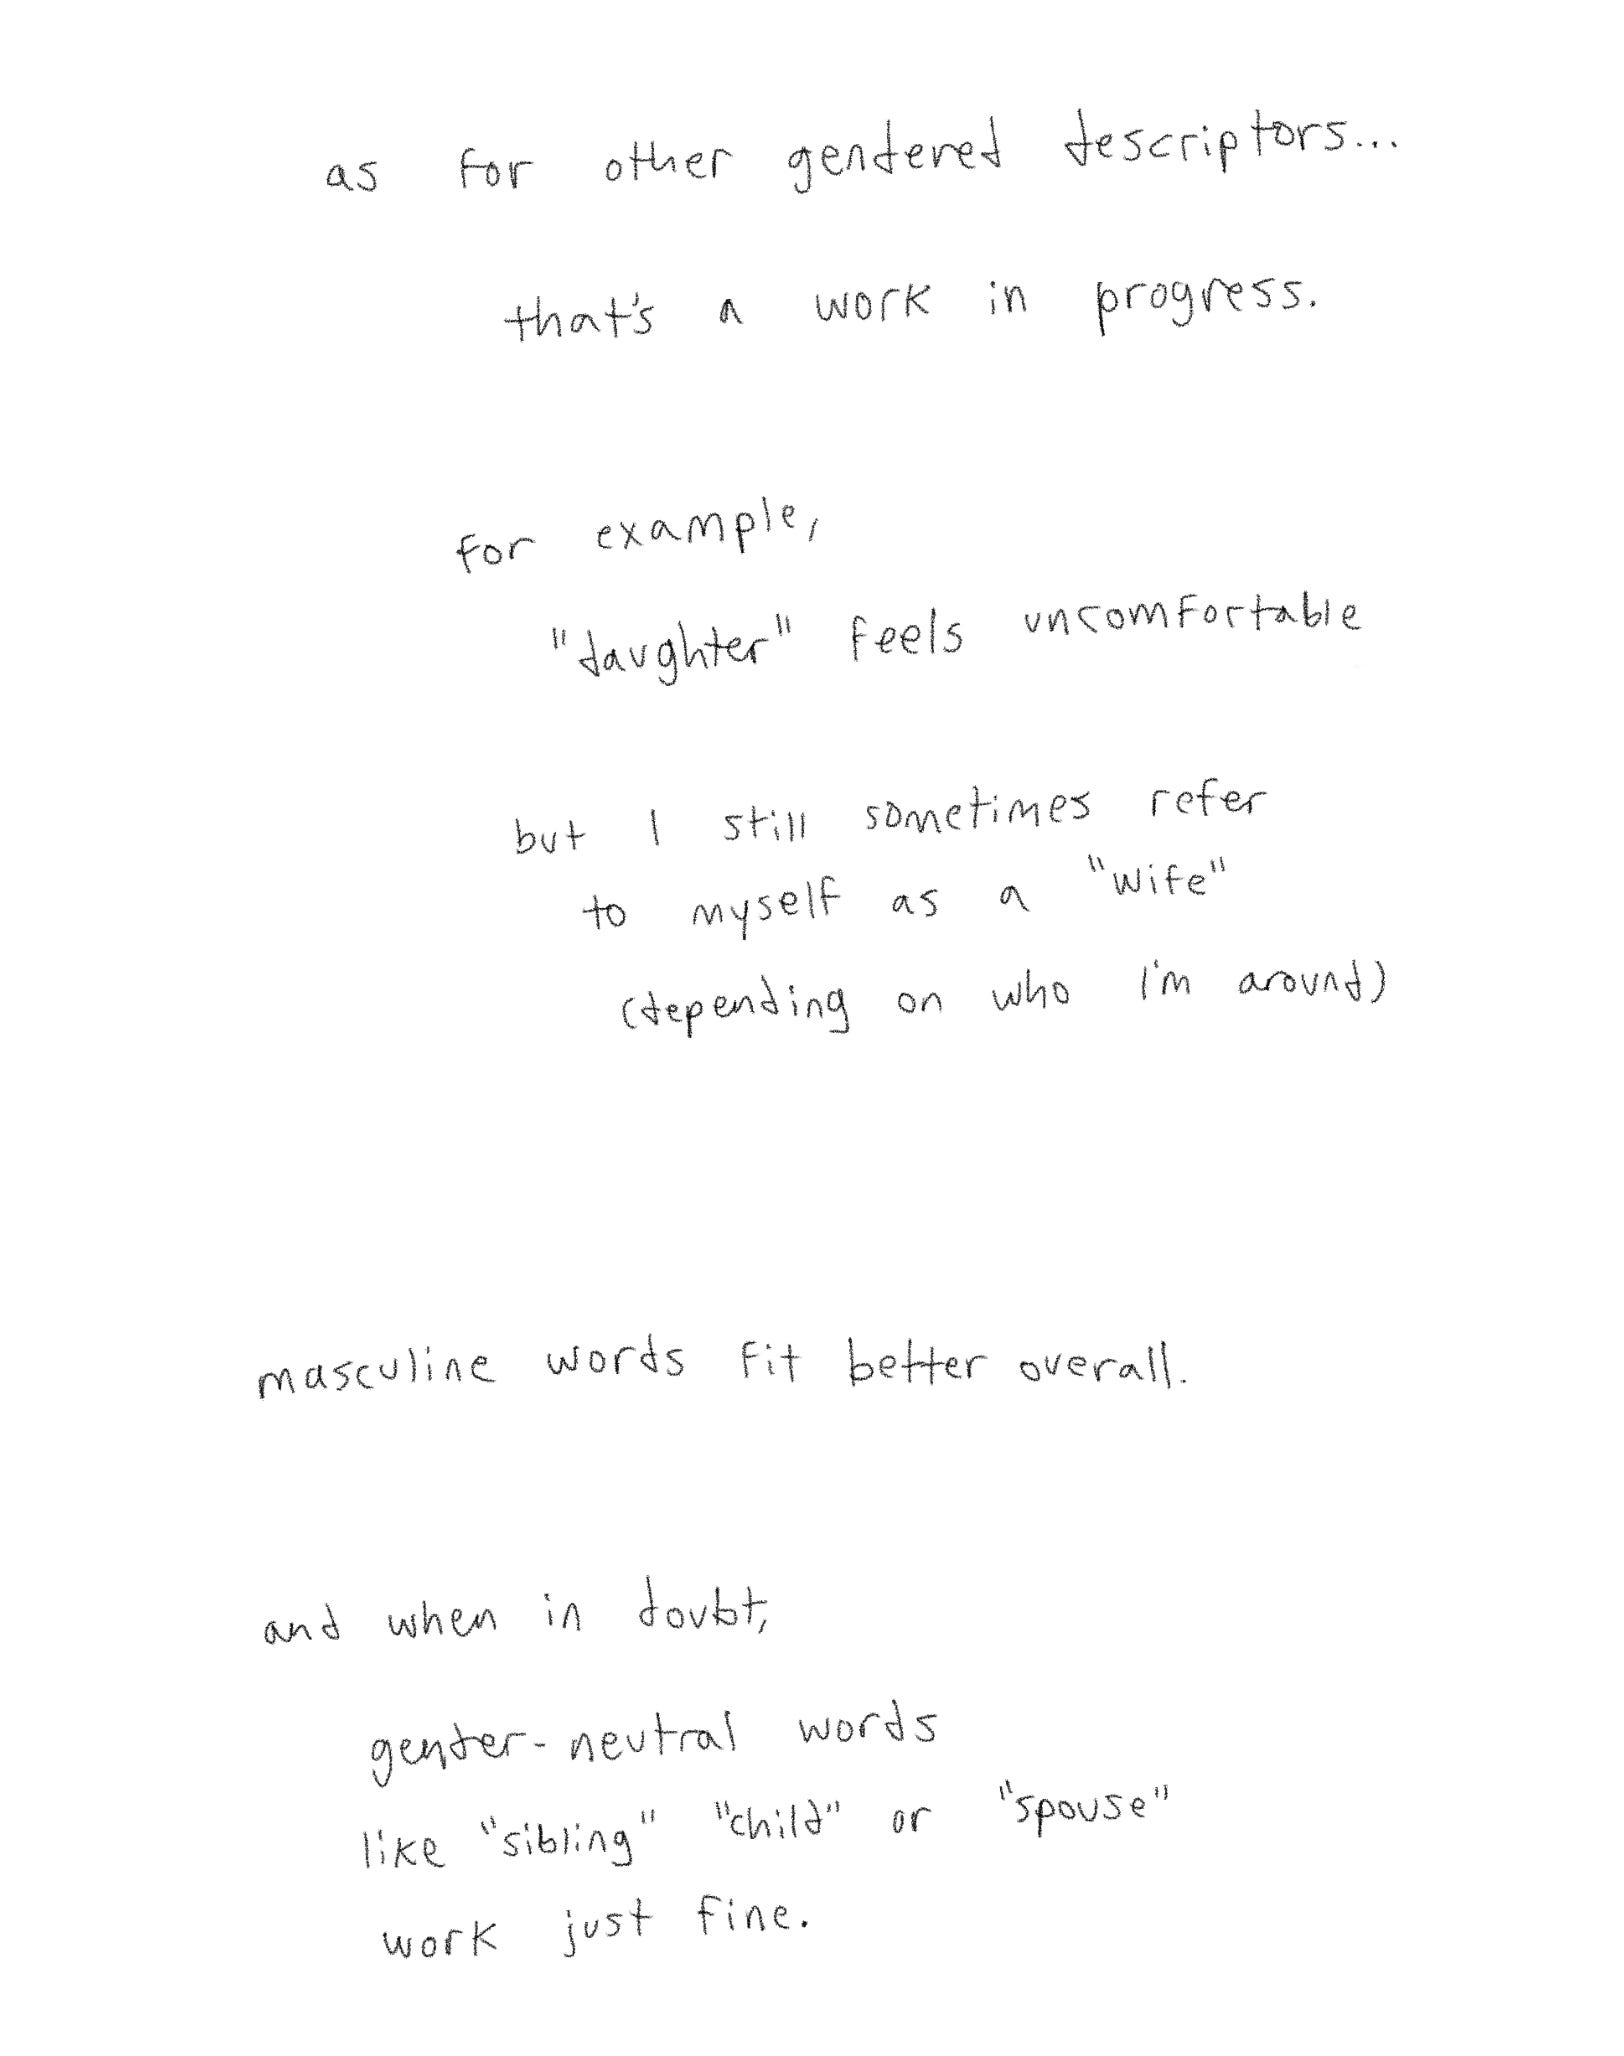 as for other gendered descriptors...
that's a work in progress.
for example,
"daughter" feels uncomfortable
but I still sometimes refer
to myself as a "wife"
(depending on who I'm around)
masculine words fit better overall.
and when in doubt,
gender-neutral words
like "sibling" "child" or "spouse"
work just fine.